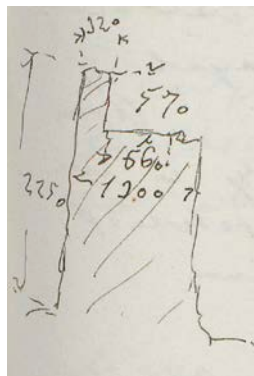 320
570
660
2250
1300